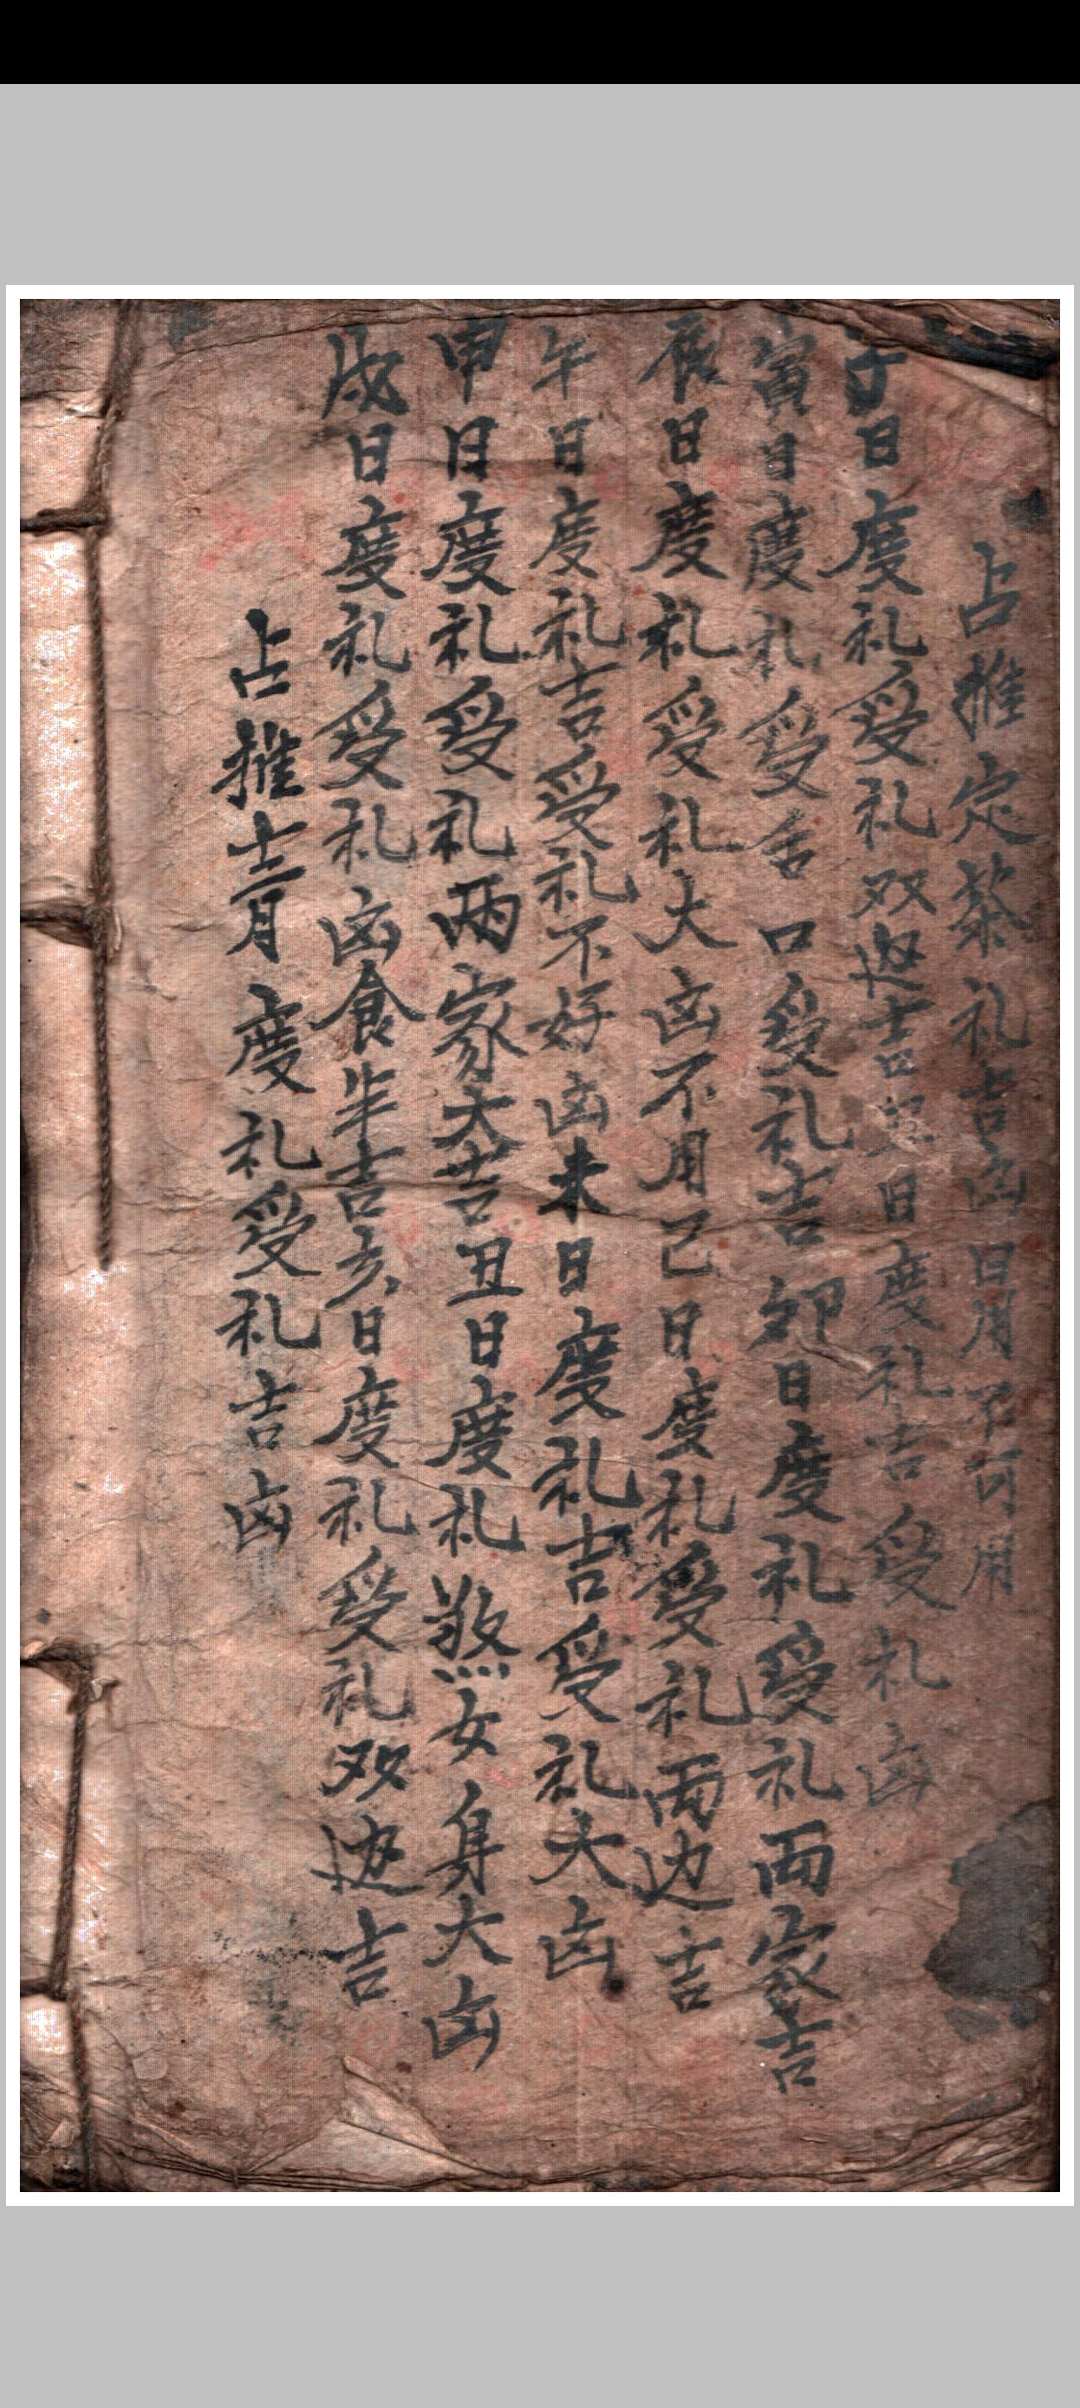 占推定
礼吉凶日月不可用
子日度礼受礼双边吉丑日度礼吉受礼凶
寅日度礼受舌口受礼吉卯日度礼受礼両家吉
辰日度礼受礼大凶不用己日度礼受礼両边吉
午日度礼吉受礼不好凶未日度礼吉受礼大凶
申日度礼受礼両家大吉丑日度礼煞女身大凶
戍日度礼受礼凶食半吉亥日度礼受礼双边吉
占推
度礼受礼吉凶